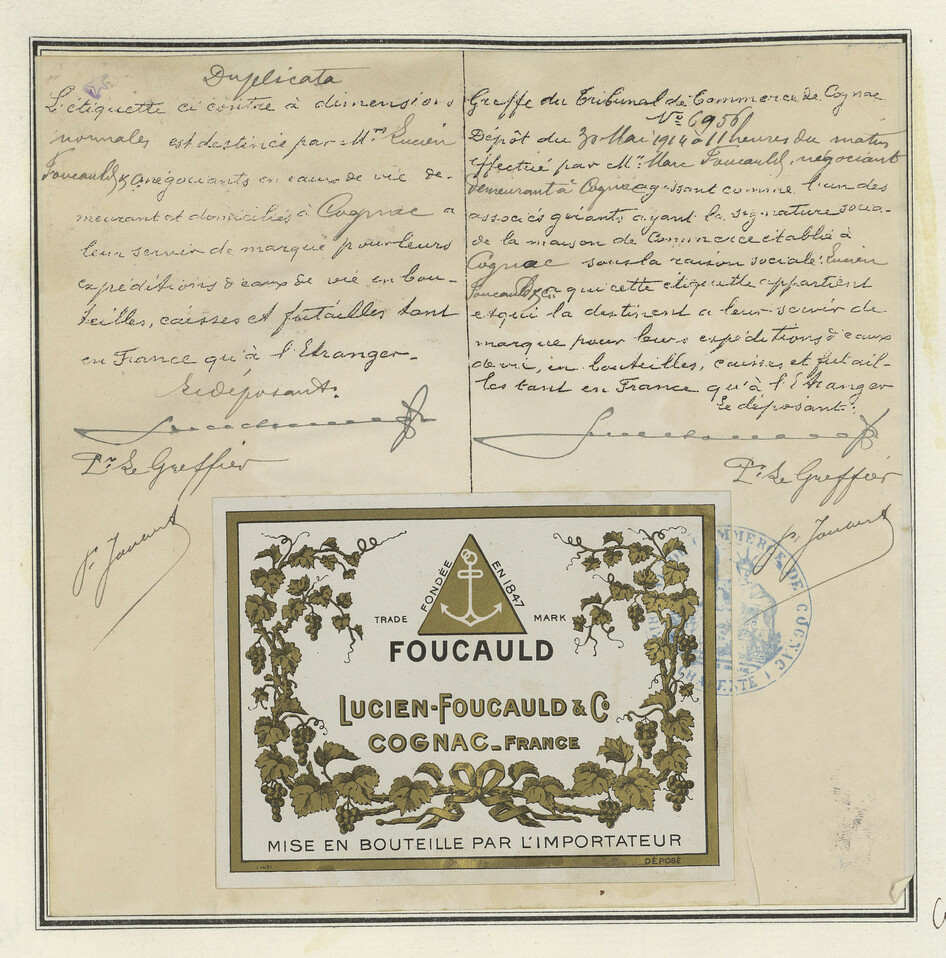 Duplicata
L'étiquette ci contre à dimensions
normales est destinée par Mrs Lucien
Foucauld & Co négociants en eaux de vie de-
meurant et domiciliés à Cognac a
leur servir de marque pour leurs
expéditions d'eaux de vie en bou-
teilles, caisses et futailles tant
en France qu'à l'Etranger-
Le déposant:
Pr Le Greffier
Greffe du Tribunal de Commerce de Cognac
No 6956
Dépôt du 30 Mai 1914 à 11 heures du matin
effectué par Mr Marc Foucauld, négociant
demeurant à Cognac agissant comme l'un des
associés gérants ayant la signature socia-
de la maison de Commerce établie à
Cognac sous la raison sociale: Lucien
Foucauld & Co a qui cette étiquette appartient
et qui la destinent a leur servir de
marque pour leurs expéditions d'eaux
de vie, en bouteilles, caisses et futail-
les tant en France qu'à l'Etranger
Le déposant:
Pr Le Greffier
FONDÉE EN 1847
TRADE MARK
FOUCAULD
LUCIEN-FOUCAULD & Co
COGNAC_FRANCE
MISE EN BOUTEILLE PAR L'IMPORTATEUR
DÉPOSÉ
COMMERCE DE COGNAC
CHARENTE